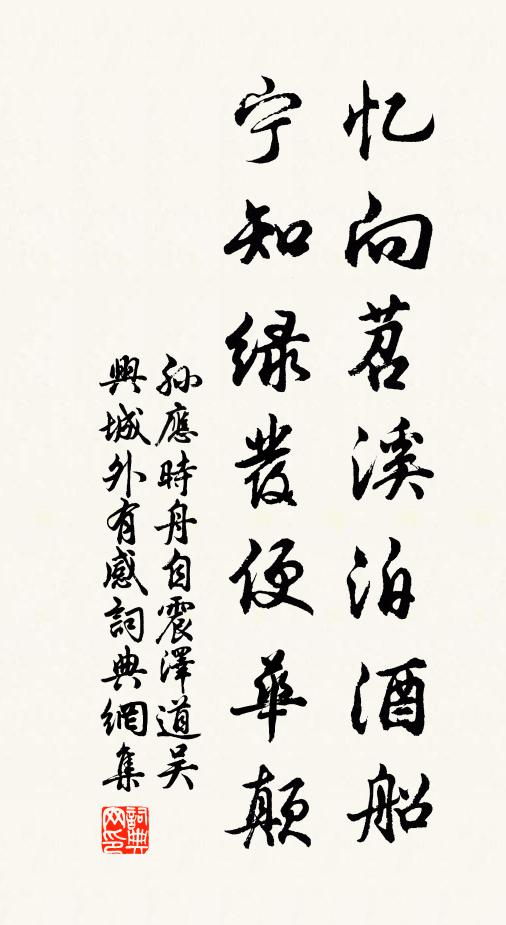 忆向苕溪泊酒船
宁知绿发便华颠
孙應時舟自震澤道吴
興城外有感詞典網集
詞典网印